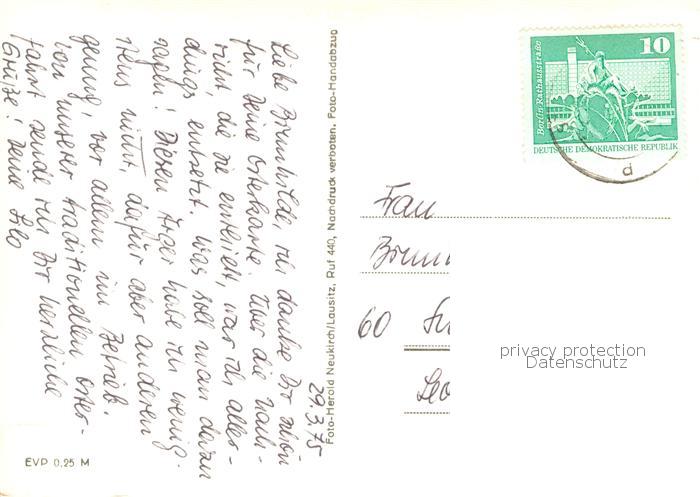 29.3.75
Liebe Brunhilde, ich danke Dir schön
für Deine Osterkarte. Über die Nach-
richt, die sie enthielt, war ich aller-
dings entsetzt. Was soll man dazu
sagen! Diesen Ärger habe ich wenig-
stens nicht, dafür aber anderen
genug, vor allem im Betrieb.
Von unserer traditionellen Oster-
fahrt sende ich Dir herzliche
Grüße! Deine Ilo
EVP 0,25 M
Foto-Herold Neukirch/Lausitz, Ruf 440, Nachdruck verboten. Foto-Handabzug
10
Berlin, Rathausstraße
DEUTSCHE DEMOKRATISCHE REPUBLIK
d
Frau
60
privacy protection
Datenschutz